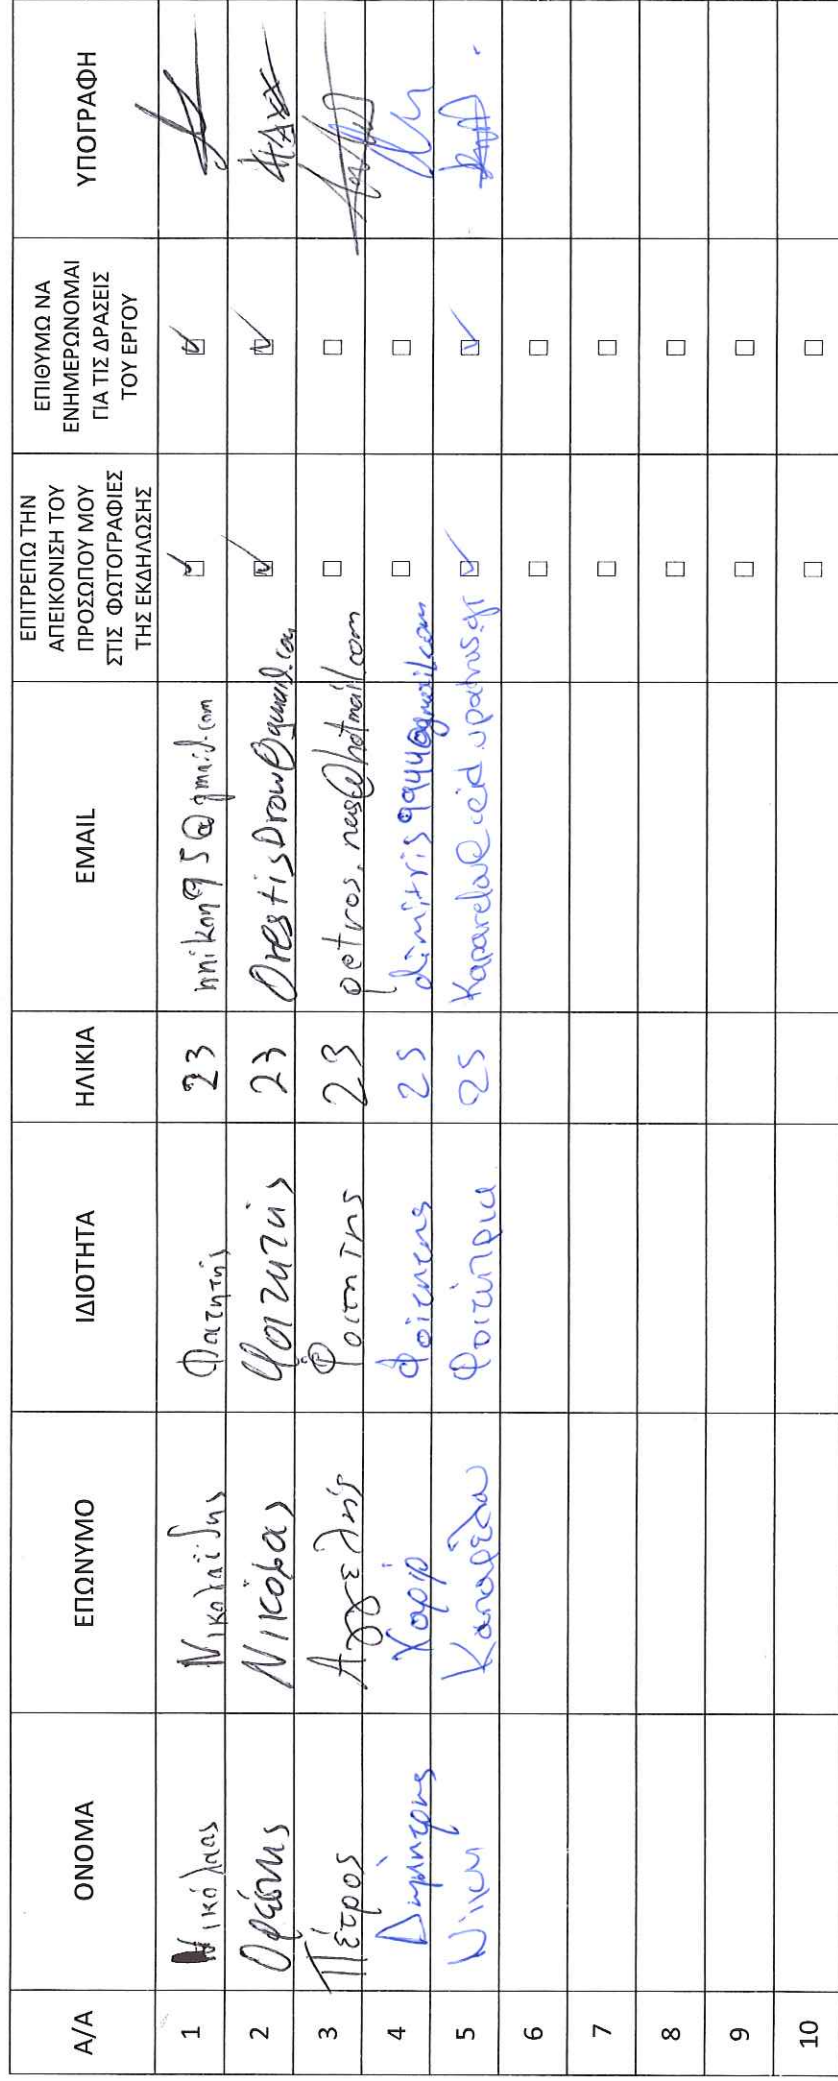 Α/Α ΟΝΟΜΑ ΕΠΩΝΥΜΟ ΙΔΙΟΤΗΤΑ ΗΛΙΚΙΑ EMAIL ΕΠΙΤΡΕΠΩ ΤΗΝ ΑΠΕΙΚΟΝΙΣΗ ΤΟΥ ΠΡΟΣΩΠΟΥ ΜΟΥ ΣΤΙΣ ΦΩΤΟΓΡΑΦΙΕΣ ΤΗΣ ΕΚΔΗΛΩΣΗΣ ΕΠΙΘΥΜΩ ΝΑ ΕΝΗΜΕΡΩΝΟΜΑΙ ΓΙΑ ΤΙΣ ΔΡΑΣΕΙΣ ΤΟΥ ΕΡΓΟΥ ΥΠΟΓΡΑΦΗ
1 Νικόλαος Νικολαΐδης Φοιτητής 23 nnikon95@gmail.com
2 Ορέστης Νικόβας Φοιτητής 23 OrestisDrow@gmail.com
3 Πέτρος Αγγελής Φοιτητης 23
4 Δημήτρης Χαρίρ Φοίτητης 25 dimitris9944@gmail.com
5 Νίκη Καπαρέλα Φοιτήτρια 25
6
7
8
9
10